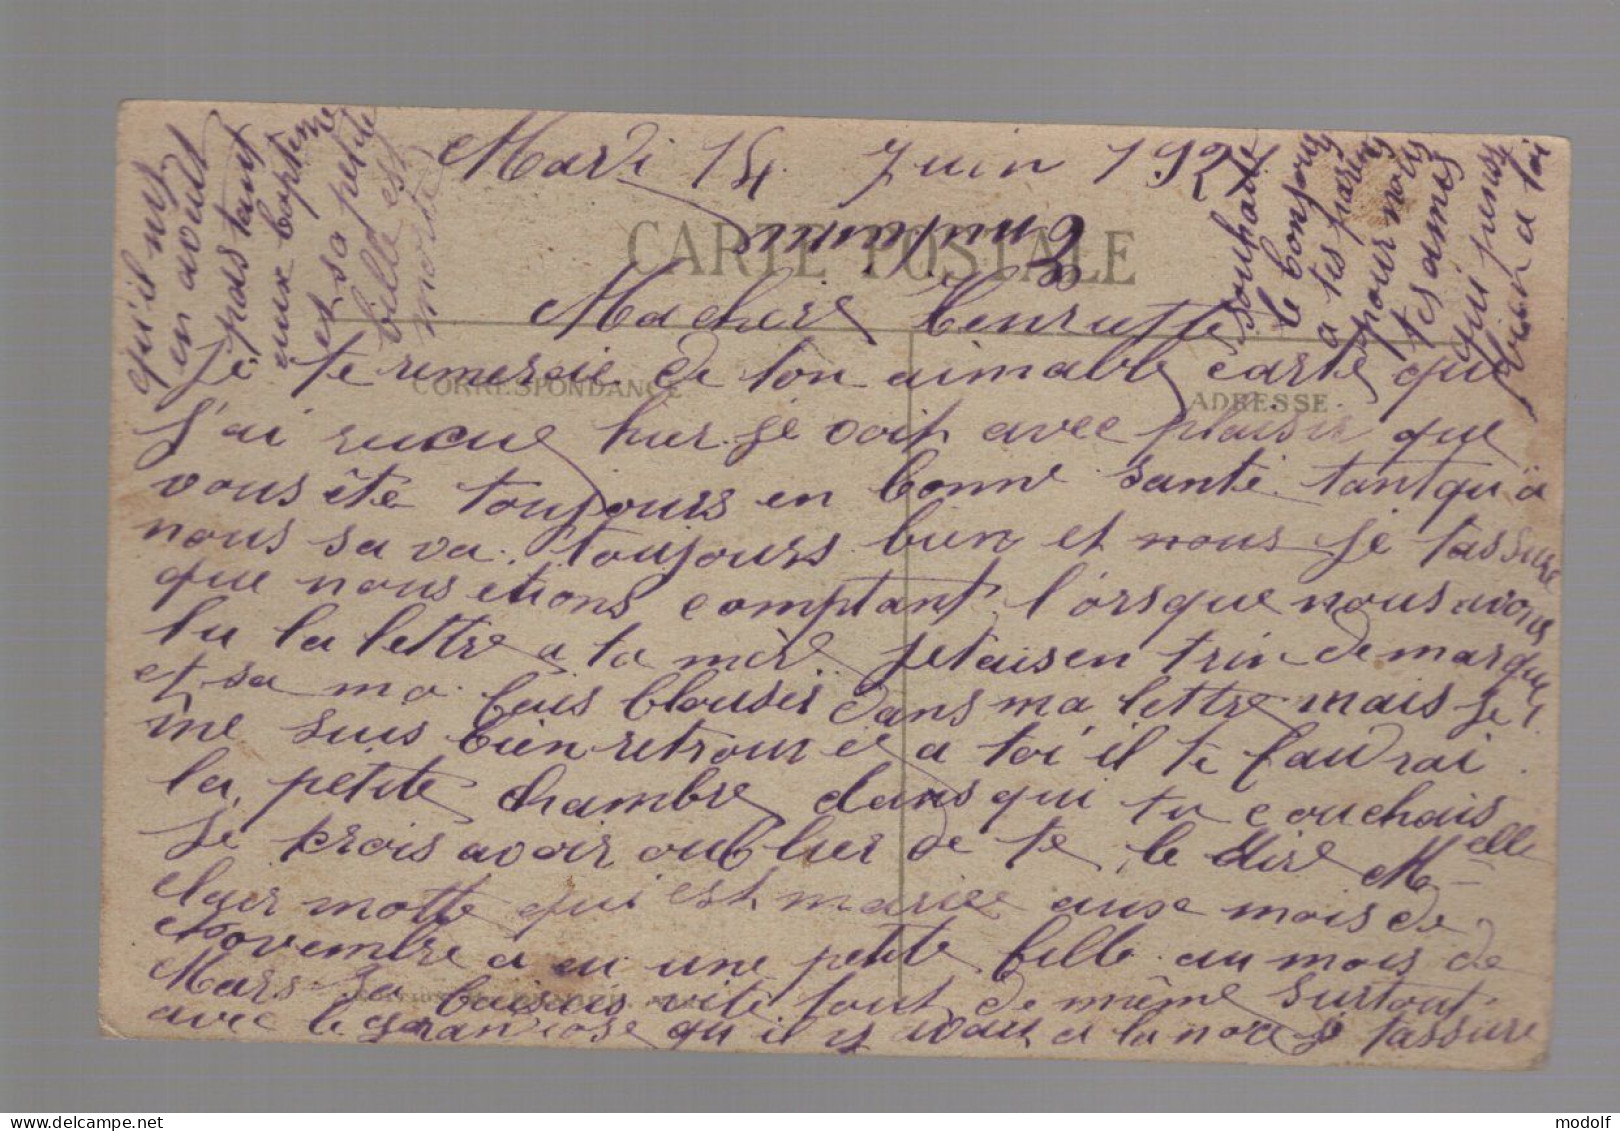 Mardi 14 Juin 1921
CARTE POSTALE
Ma chère Henriette
CORRESPONDANCE
ADRESSE
Je te remercie de ton aimable carte que
J'ai recue hier. je voit avec plaisir que
vous ête toujours en bonne santé. tant qu'a
nous sa va. toujours bien et nous je tassure
que nous etions comptant l'orsque nous avons
lu la lettre a ta mère. jetais en trin de marque
et sa ma fais blouser dans ma lettre mais je
me suis bien retrouvée a toi il te faudrai
la petite chambre dans qui tu couchais
Je krois avoir oublier de te le dire Melle
clair motte qui est mariee aux mois de
Novembre a eu une petite fille au mois de
Mars. Sa vite tout de même surtout
avec le grandiose qu'il y avait a la noce je tassure
qu'il nest
en avait
pas tant
aux baptême
et sa petite
fille est
morte
souhaite
le bonjour
a tes parents
pour nous
tes amis
qui pense
bien a toi
modolf